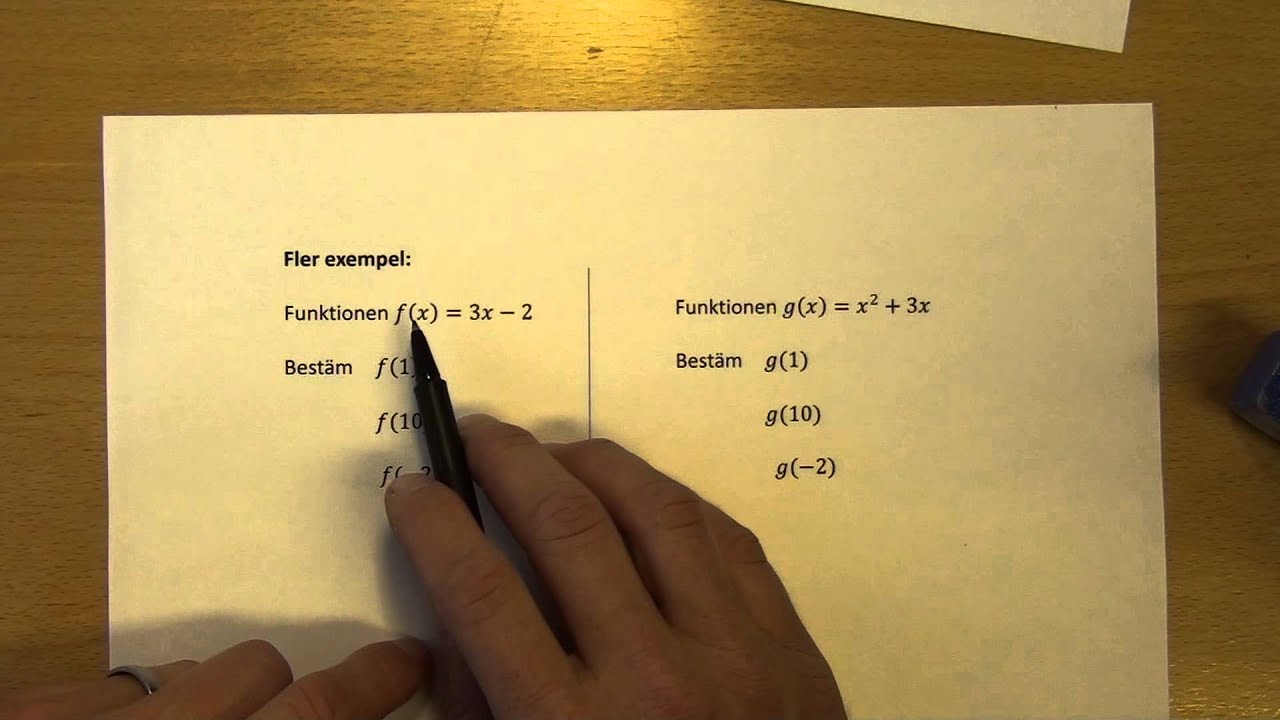 Fler exempel:
Funktionen f(x) = 3x − 2
Bestäm f(1)
f(10
f(−2
Funktionen g(x) = x² + 3x
Bestäm g(1)
g(10)
g(−2)